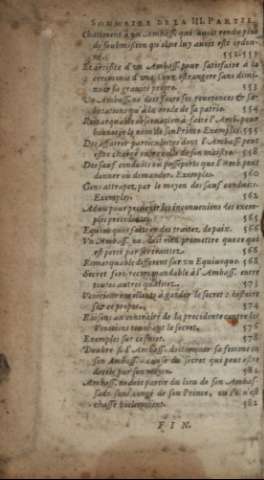 SOMMAIRE DE LA III. PARTIE
Chastiment à un Ambass. qui avoit rendu plus
de soubmission qu'il ne luy avoit esté ordon-
né. 552. 553
d'un Ambass. pour satisfaire à la
ceremonie d'une Cour estrangere sans dimi-
nuer la gravité propre. 553
Un Ambass. ne doit faire ses reverences & sa-
lutations qu'à la mode de sa patrie. 554
Remarquable observation à faire à l'Amb. pour
le nom de son Prince. Exemples. 555
Des affaires particulieres dont l'Ambass. peut
estre chargé outre celle de son maistre. 558
Des sauf conduits ou passeports que l'Amb. peut
donner ou demander. Exemples. 560
Gens attrapez par le moyen des sauf conduits.
Exemples. 562
Advis pour prevenir les inconveniens des exem-
ples precedens. 565
Equivoques faites en des traitez de paix. 566
Un Ambass. ne doit rien promettre quoy que
568
Remarquable different sur un Equivoque. 568
Secret fort recommandable à l'Ambass. entre
toutes autres qualitez. 573
Venitiens excellents à garder le secret & histoire
sur ce propos. 574
Raisons au contraire de la precedente contre les
Venitiens touchant le secret. 576
Exemples sur ce sujet. 578
si l'Ambass. doit mener sa femme en
son Ambass. à cause du secret qui peut estre
decelé par son moyen. 580
Ambass. ne doit partir du lieu de son Ambas-
sade sans congé de son Prince, ou s'il n'est
chassé 582
FIN.